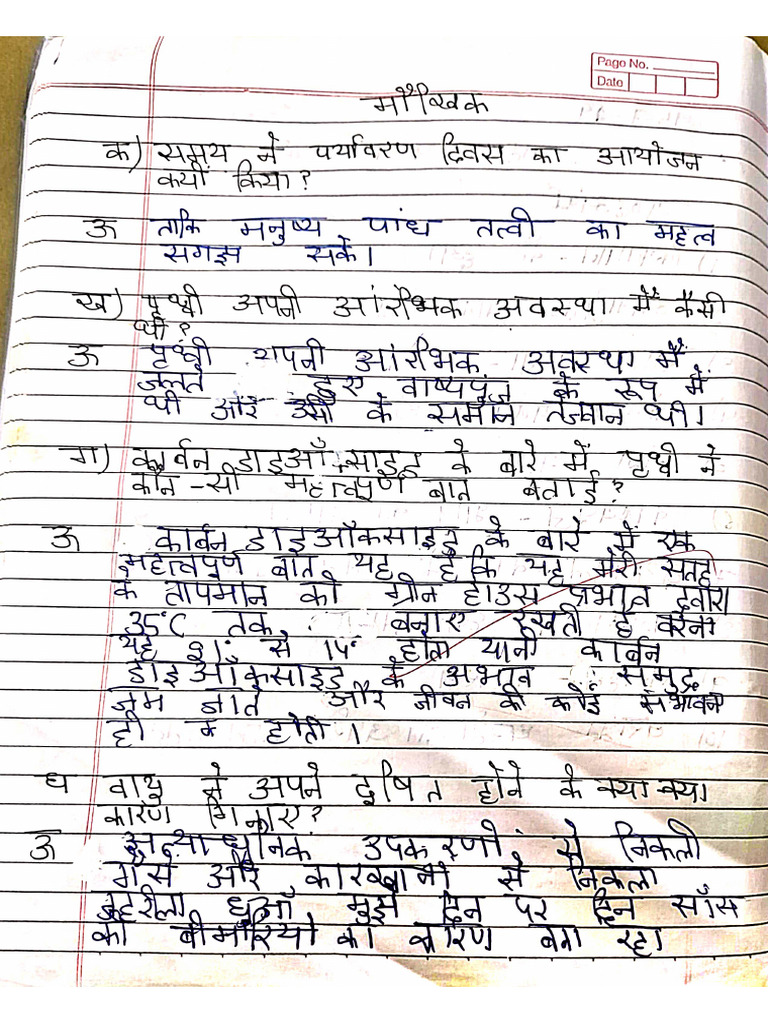 Page No.
Date
मौखिक
क) समय ने पर्यावरण दिवस का आयोजन
क्यों किया?
ऊ ताकि मनुष्य पांध तत्वी का महत्व
सगझ सकें।
ख) पृथ्वी अपनी आंरभिक अवस्था में कैसी
थी?
ऊ पृथ्वी अपनी आंरभिक अवस्था में
जलते हुए वाष्पपुंज के रूप में
थी और उसी के समान तेजवान थी।
ग) कार्वन डाइऑकसाइड के बारे में पृथ्वी ने
कौन-सी महत्वपुर्ण बात बताई?
ऊ कार्बन डाइऑकसाइड के बारे में एक
महत्वपुर्ण बात यह है कि यह मेरी सतह
के तापमान को ग्रीन हाउस प्रभाव द्वारा
35°C तक बनाए रखती है वरना
यह से 14° होता यानी कार्बन
डाइऑकसाइड के अभाव समुद्र
जम जाते और जीवन की कोई संभावना
ही न होती।
घ वायु ने अपने दूषित होने के क्या क्या
कारण गिनाए?
ऊ अत्याधुनिक उपकरणी से निकली
गैसे और कारखानो से निकला
जहरीला धुआँ मुझे दिन पर दिन साँस
की बीमारियो का कारण बना रहा